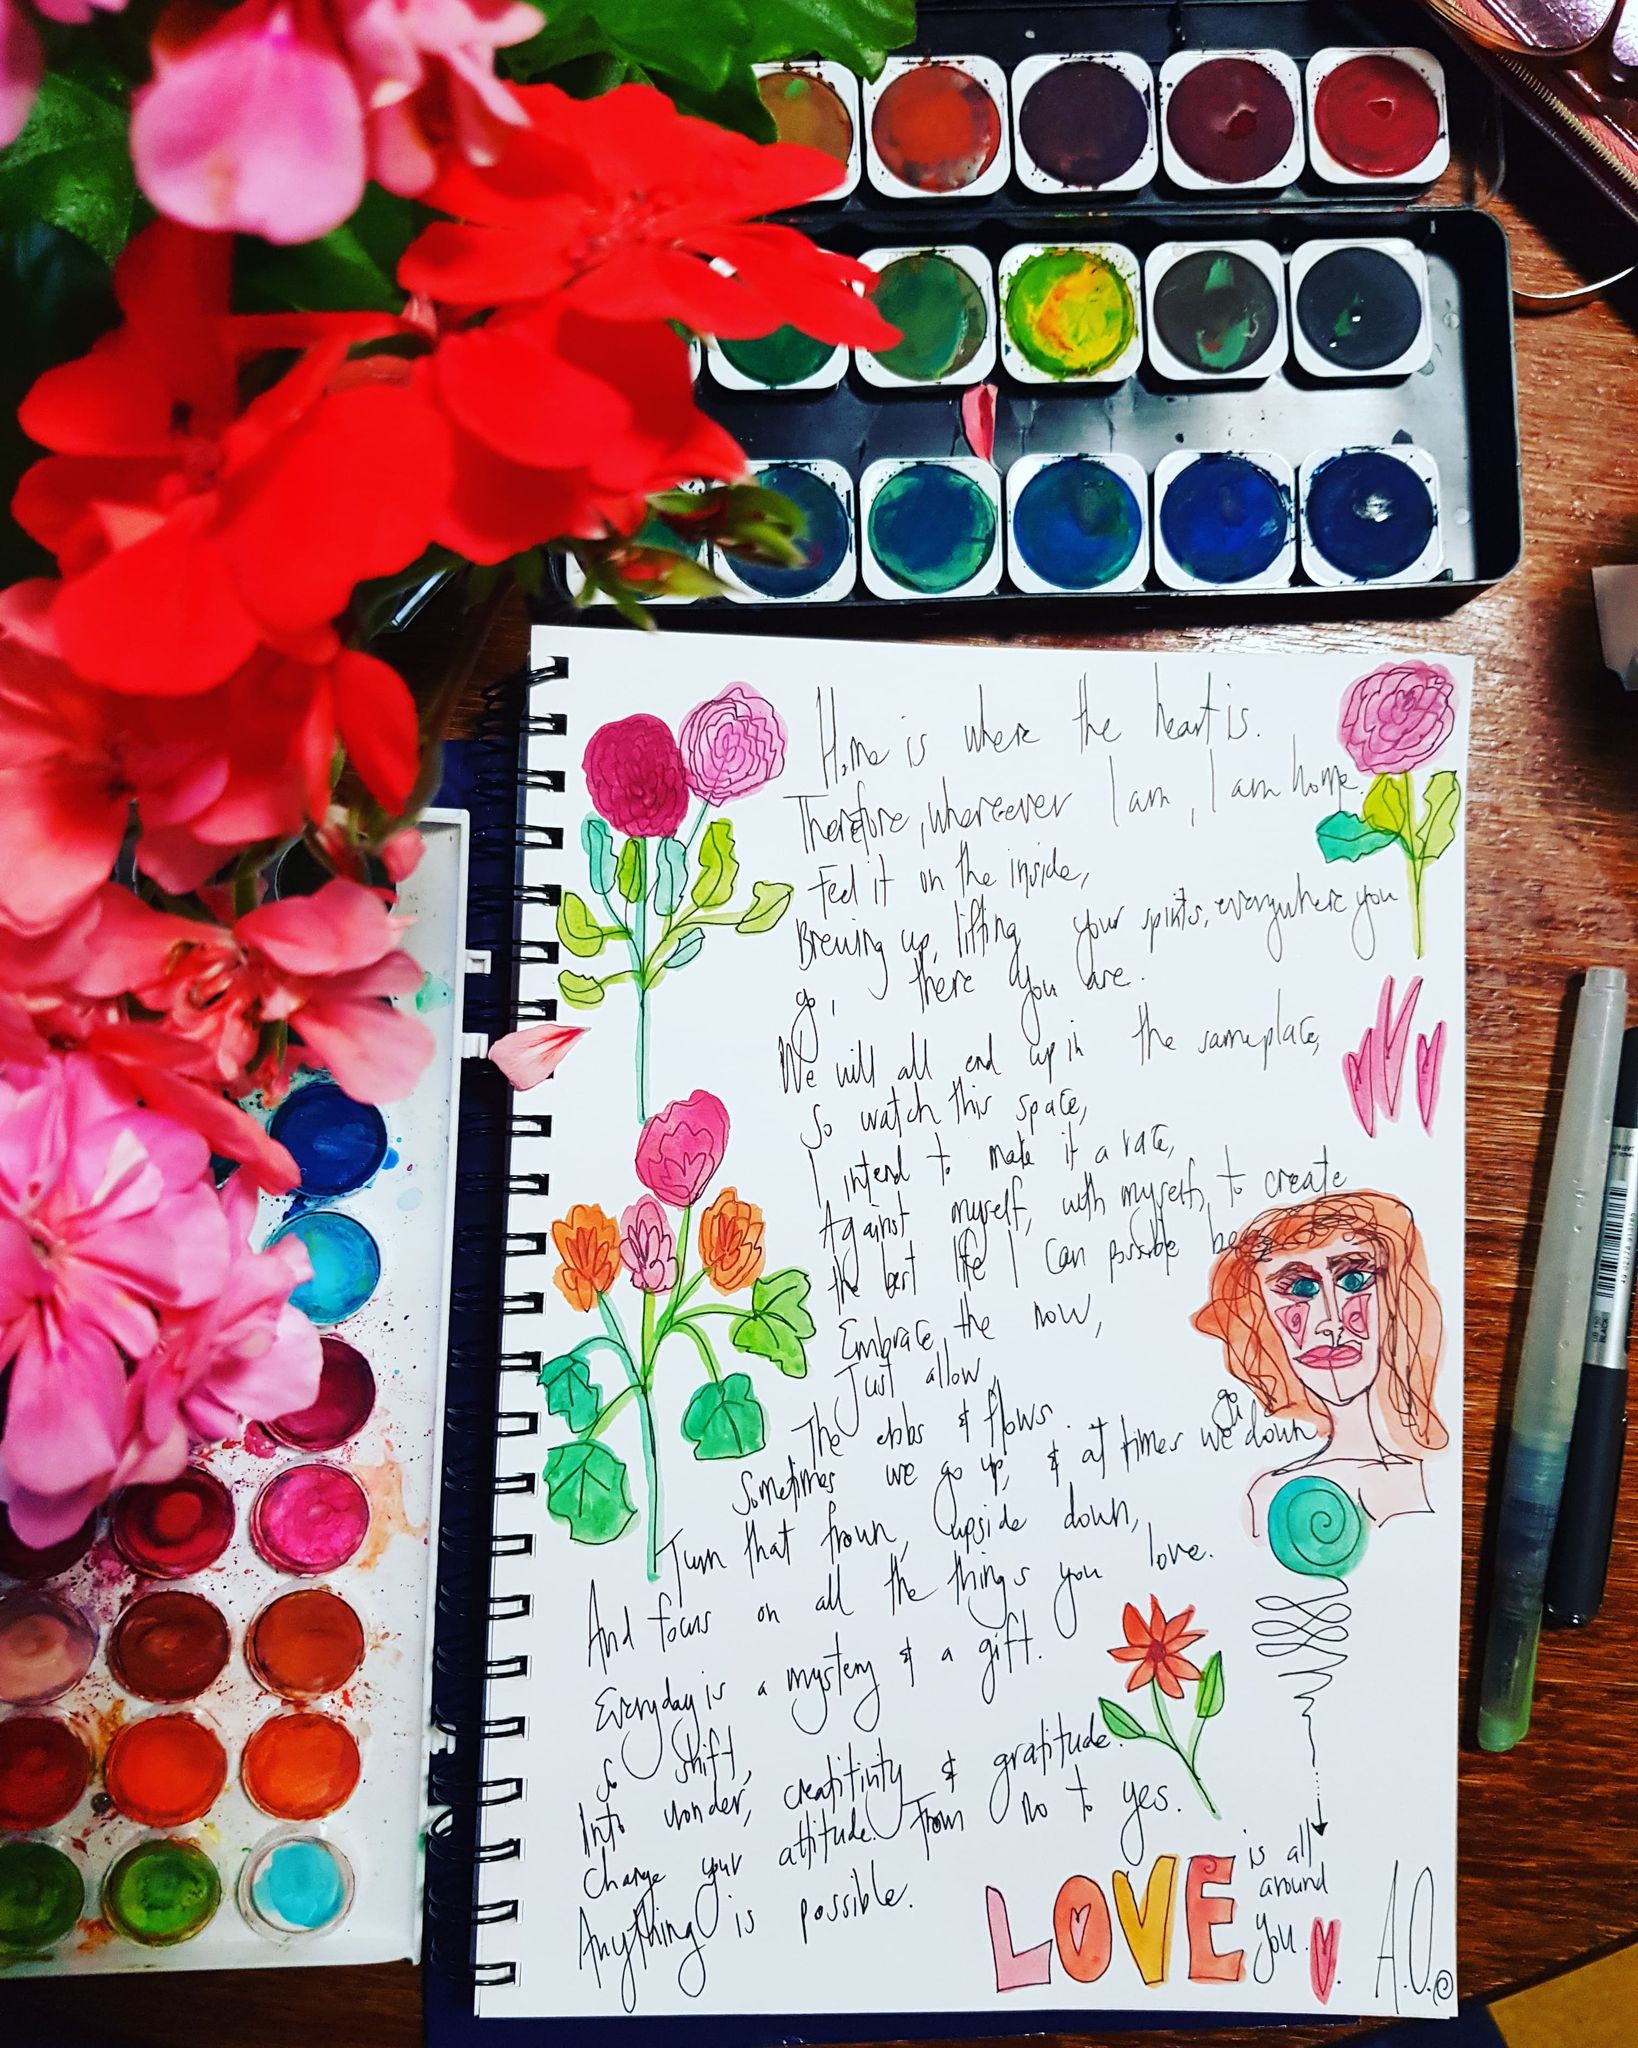 Home is where the heart is.
Therefore, whereever I am, I am home.
Feel it on the inside,
Brewing up, lifting your spirits, everywhere you
go, there you are.
We will all end up in the same place,
So watch this space,
I intend to make it a race,
Against myself, with myself, to create
the best life I can possibe
Embrace the now,
Just allow,
The ebbs & flows.
Sometimes we go up, & at times we go down
Turn that frown, upside down,
And focus on all the things you love.
Everyday is a mystery & a gift.
So shift,
Into wonder, creatitivity & gratitude.
Change your attitude. From no to yes.
Anything is possible.
LOVE
is all
around
you.
A.O.
BLACK